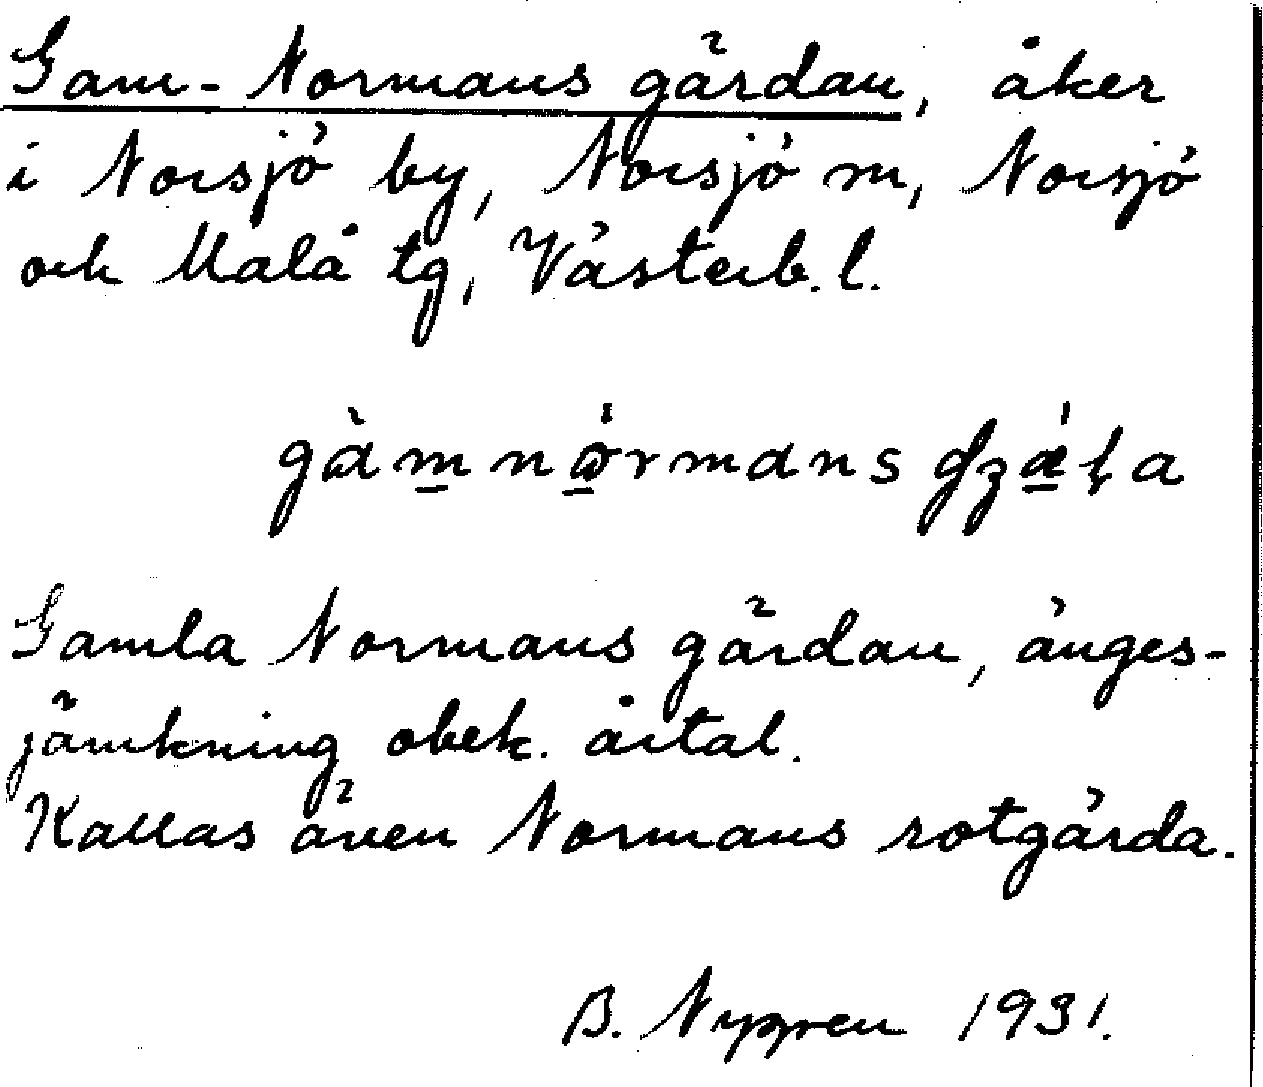 Gam-Normans gärdan, åker
i Norsjö by, Norsjö sn, Norsjö
och Malå tg, Västerb. l.
Gamla Normans gärdan, änges-
jämkning obek. årtal.
Kallas även Normans rotgärda.
B. Nygren 1931.